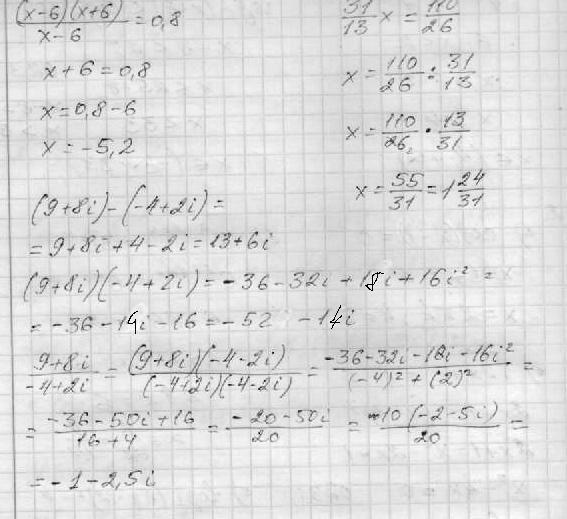 (x-6)(x+6)/x-6 = 0,8
x+6=0,8
x=0,8-6
x=-5,2
31/13 x = 110/26
x = 110/26 : 31/13
x = 110/26 · 13/31
x = 55/31 = 1 24/31
(9+8i)-(-4+2i)=
= 9+8i+4-2i=13+6i
(9+8i)(-4+2i)=-36-32i+18i+16i² =
= -36-14i-16=-52 -14i
9+8i/-4+2i = (9+8i)(-4-2i)/(-4+2i)(-4-2i) = -36-32i-18i-16i²/(-4)²+(2)² =
= -36-50i+16/16+4 = -20-50i/20 = -10(-2-5i)/20 =
= -1-2,5i